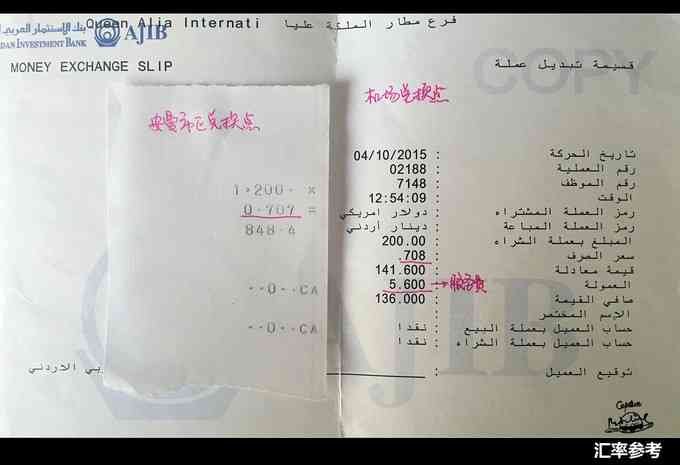 بنك الاستثمار العربي
Queen Alia Internati فرع مطار الملكة عليا
DAN INVESTMENT BANK AJIB
MONEY EXCHANGE SLIP
قسيمة تبديل عملة
COPY
机场兑换点
安曼市区兑换点
1·200· ×
0·707 =
848·4
··0··CA
··0··CA
04/10/2015 : تاريخ الحركة
02188 : رقم العملية
7148 : رقم الموظف
12:54:09 : الوقت
دولار امريكي : رمز العملة المشتراه
دينار أردني : رمز العملة المباعة
200.00 : المبلغ بعملة الشراء
.708 : سعر الصرف
141.600 : قيمة معادلة
5.600 : العمولة
→服务费
136.000 : صافي القيمة
: الاسم المختصر
نقدا : حساب العميل بعملة البيع
نقدا : حساب العميل بعملة الشراء
: توقيع العميل
بي الاردني
AJIB
汇率参考